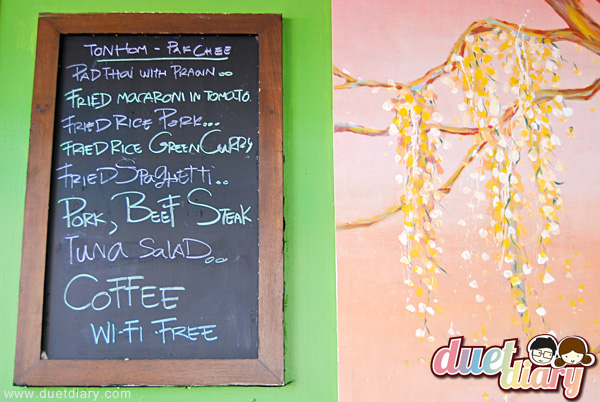 TONHOM - PAKCHEE
PAD THAI WITH PRAWN..
FRIED MACARONI IN TOMATO.
FRIED RICE PORK...
FRIED RICE GREEN CURRY
FRIED SPAGHETTI..
PORK, BEEF STEAK
TUNA SALAD...
COFFEE
WI-FI FREE
www.duetdiary.com
duet
diary